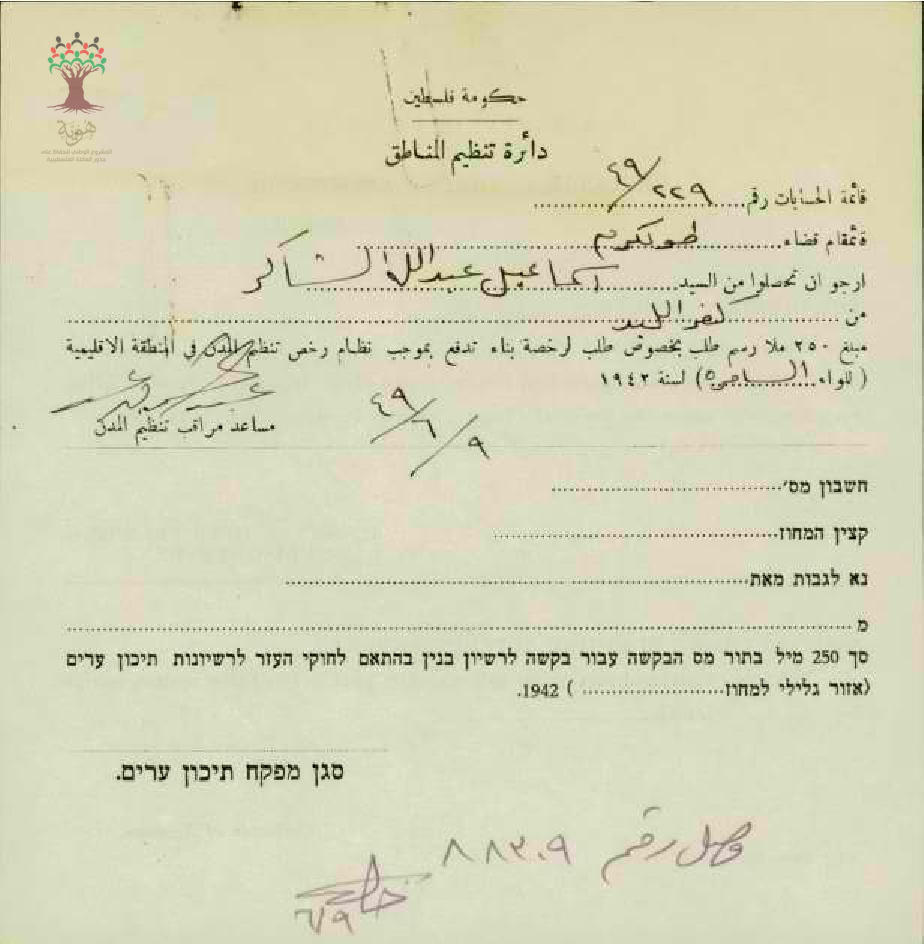 هوية
المشروع الوطني للحفاظ على
جذور العائلة الفلسطينية
حكومة فلسطين
دائرة تنظيم المناطق
قائمة الحسابات رقم ٢٢٩/٤٩
قائمقام قضاء طولكرم
ارجو ان تحصلوا من السيد اسماعيل عبدالله الشاكر
من كفر اللبد
مبلغ ٢٥٠ ملا رسم طلب بخصوص طلب لرخصة بناء تدفع بموجب نظام رخص تنظيم المدن في المنطقة الاقليمية
( للواء السامرة) لسنة ١٩٤٢
مساعد مراقب تنظيم المدن
٤٩/٦/٩
חשבון מס׳
קצין המחוז
נא לגבות מאת
מ
סך 250 מיל בתור מס הבקשה עבור בקשה לרשיון בנין בהתאם לחוקי העזר לרשיונות תיכון ערים
(אזור גלילי למחוז ) 1942.
סגן מפקח תיכון ערים.
وصل رقم ٨٨٣٠٩
٦/٩